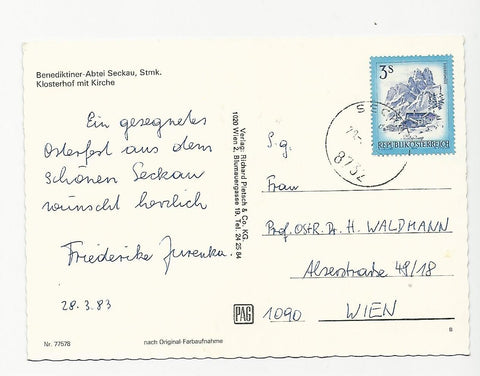 Benediktiner-Abtei Seckau, Stmk.
Klosterhof mit Kirche
Ein gesegnetes
Osterfest aus dem
schönen Seckau
wünscht herzlich
Friederike Jurenka.
28.3.83
Nr. 77578
nach Original-Farbaufnahme
Verlag: Richard Pietsch & Co. KG.
1020 Wien 2, Blumauergasse 19, Tel. 24 25 84
PAG
3 S
REPUBLIK ÖSTERREICH
8732
S.g.
Frau
Prof. OSTR. Dr. H. WALDMANN
Alserstraße 48/18
1090 WIEN
B